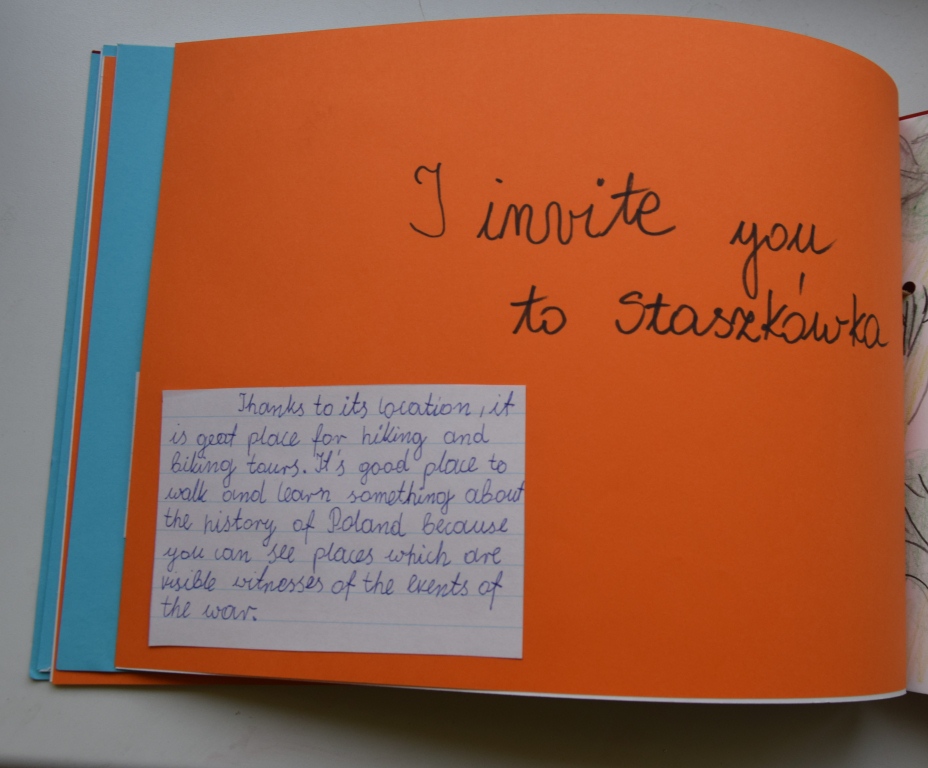 I invite you
to Staszkówka
Thanks to its location, it
is great place for hiking and
biking tours. It's good place to
walk and learn something about
the history of Poland because
you can see places which are
visible witnesses of the events of
the war.